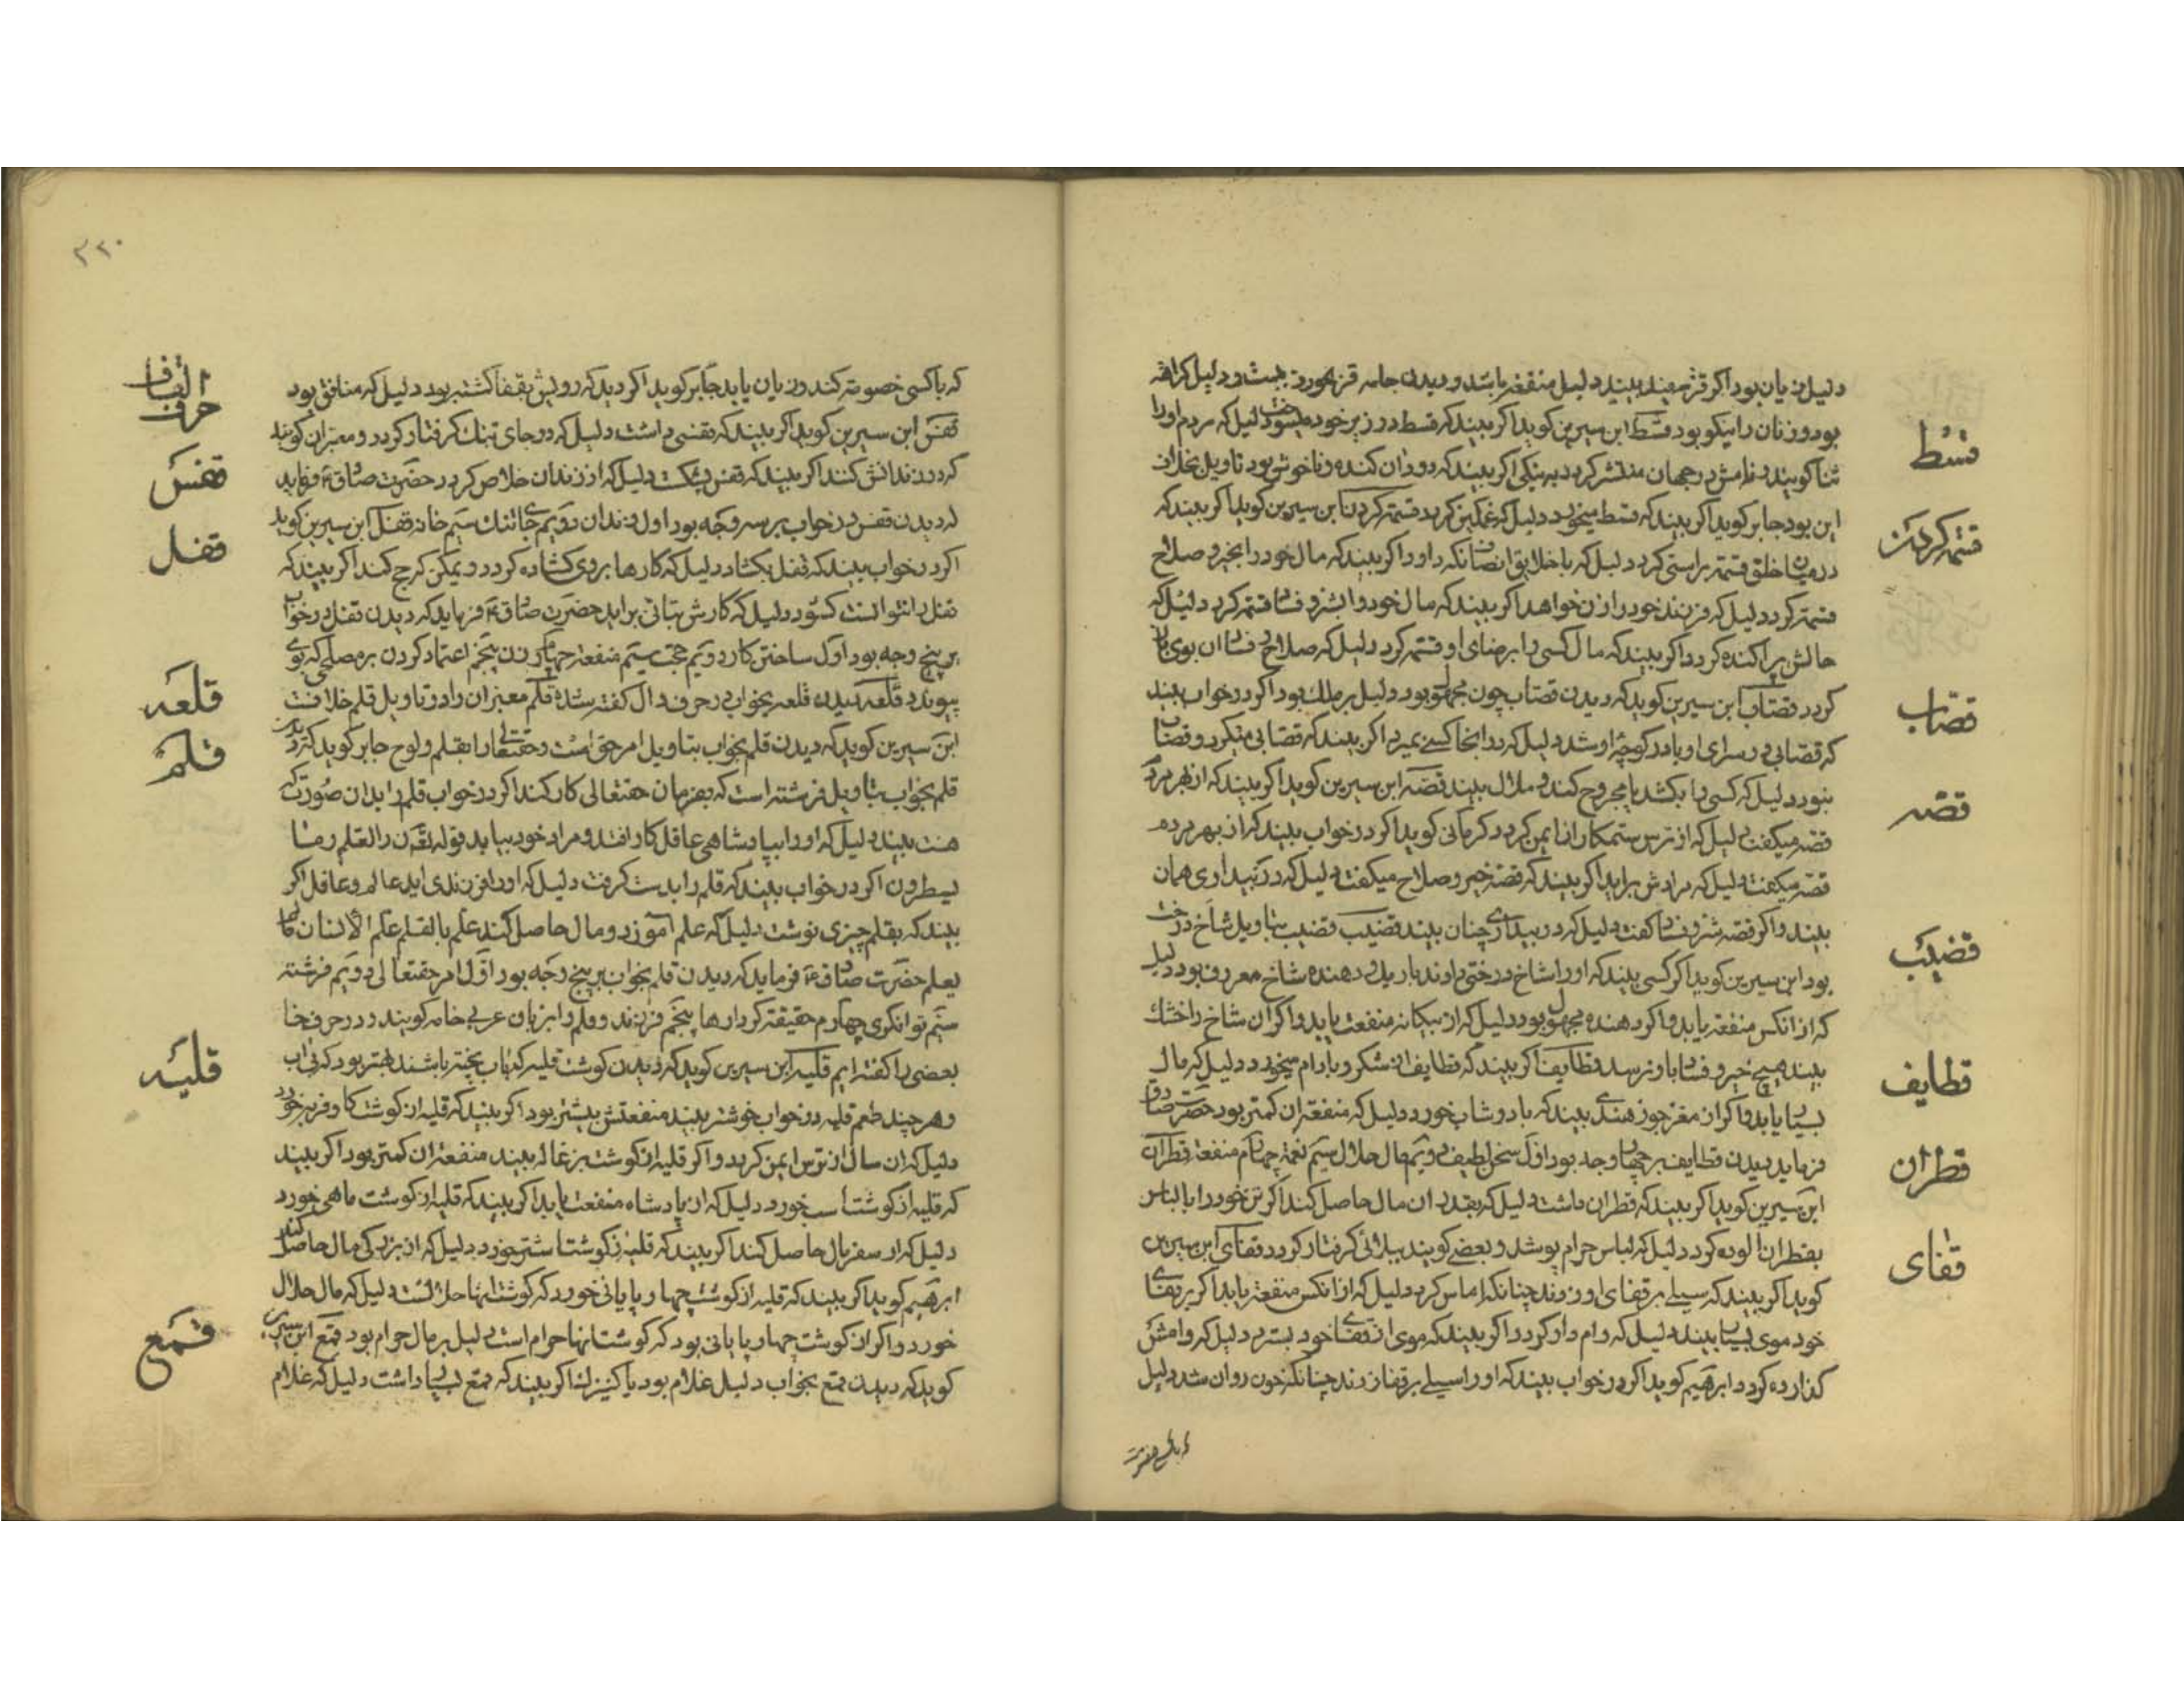 دلیل زیان بود اگر قز سفید بیند دلیل منفعه باشد و دیدن جامه قز
بود و زنان را نیکو بود قسط ابن سیرین گوید اگر بیند که قسط در زیر خود میسوخت دلیل که مردم او را
ثنا گویند و نامش در جهان منتشر گردد به نیکی اگر بیند که دود ان کنده و ناخوش بود تاویل بخلاف
این بود جابر گوید اگر بیند که قسط میخورد دلیل که غمگین گردد قسمة کردن ابن سیرین گوید اگر بیند که
در میان خلق قسمة براستی کرد دلیل که با خلایق انصاف نگه دارد و اگر بیند که مال خود را بخیر و صلاح
قسمة کرد دلیل که فرزند خود را زن خواهد اگر بیند که مال خود را بشر و فساد قسمة کرد دلیل که
حالش پراکنده گردد اگر بیند که مال کسی را برضای او قسمه کرد دلیل که صلاح و فساد ان بوی باز
گردد قصاب ابن سیرین گوید که دیدن قصاب چون مجهول بود دلیل بر ملک بود اگر در خواب بیند
که قصابی در سرای او یا در کوچه او شد دلیل که در انجا کسی بمیرد اگر بیند که قصابی میکرد و قصاب
نبود دلیل که کسی را بکشد یا مجروح کند و ملال بیند قصه ابن سیرین گوید اگر بیند که از بهر مردم
قصه میگفت دلیل که از ترس ستمکاران ایمن گردد کرمانی گوید اگر در خواب بیند که از بهر مردم
قصه میگفت دلیل که مرادش براید اگر بیند که قصه خیر و صلاح میگفت دلیل که در بیداری همان
بیند و اگر قصه شر و فساد گفت دلیل که در بیداری چنان بیند قضیب قضیب بتاویل شاخ درخت
بود ابن سیرین گوید اگر کسی بیند که او را شاخ درختی دادند دهنده شاخ معروف بود دلیل
که از انکس منفعة یابد و اگر دهنده مجهول بود دلیل که از بیگانه منفعت یابد و اگر ان شاخ را خشک
بیند هیچ خیر و فساد باو نرسد قطایف اگر بیند که قطایف از شکر و بادام میخورد دلیل که مال
بسیار یابد و اگر از مغز جوز هندی بیند که با دوشاب خورد دلیل که منفعة ان کمتر بود حضرت صادق
فرماید دیدن قطایف بر چهار وجه بود اول سخن لطیف دویم مال حلال سیم نعمة چهارم منفعة قطران
ابن سیرین گوید اگر بیند که قطران داشت دلیل که بقدر ان مال حاصل کند اگر تن خود را با لباس
بقطران الوده کرد دلیل که لباس حرام پوشد و بعضی گویند ببلائی گرفتار گردد قفای ابن سیرین
گوید اگر بیند که سیلی بر قفای او زدند چنانکه اماس کرد دلیل که از انکس منفعة یابد اگر بر قفای
خود موی بسیار بیند دلیل که وام دار گردد اگر بیند که موی از قفای خود بسترد دلیل که وامش
گذارده گردد ابرهیم گوید اگر در خواب بیند که او را سیلی بر قفا زدند چنانکه خون روان شد دلیل
قسط
قسمه کردن
قصاب
قصه
قضیب
قطایف
قطران
قفای
۳۲۰
که با کسی خصومة کند و زیان یابد جابر گوید اگر دید که رویش بقفا گشته بود دلیل که منافق بود
قفس ابن سیرین گوید اگر بیند که قفسی داشت دلیل که در جای تنگ گرفتار گردد و معبران گویند
که در زندانش کنند اگر بیند که قفس بشکست دلیل که از زندان خلاص گردد حضرت صادق ع فرماید
که دیدن قفس در خواب بر سه وجه بود اول زندان دویم جای تنگ سیم خانه قفل ابن سیرین گوید
اگر در خواب بیند که قفل بگشاد دلیل که کارها بر وی گشاده گردد و یمکن که حج کند اگر بیند که
قفل را نتوانست گشود دلیل که کارش بتانی براید حضرت صادق ع فرماید که دیدن قفل در خواب
بر پنج وجه بود اول ساختن کار دویم حجت سیم منفعة چهارم زن پنجم اعتماد کردن بر مصلحی که بوی
پیوندد قلعه دیدن قلعه بخواب در حرف دال گفته شده قلم معبران را در تاویل قلم خلافست
ابن سیرین گوید که دیدن قلم بخواب بتاویل امر حق است و حقتعالی را بقلم و لوح جابر گوید که دیدن
قلم بخواب بتاویل فرشته است که بفرمان حقتعالی کار کند اگر در خواب قلم را بدان صورت که
هست بیند دلیل که او را بپادشاهی عاقل کار افتد و مراد خود بیابد قوله تعالی ن والقلم وما
یسطرون اگر در خواب بیند که قلم را بدست گرفت دلیل که او را فرزندی اید عالم و عاقل اگر
بیند که بقلم چیزی نوشت دلیل که علم آموزد و مال حاصل کند علم بالقلم علم الانسان مالم
یعلم حضرت صادق ع فرماید که دیدن قلم بخواب بر پنج وجه بود اول امر حقتعالی دویم فرشته
سیم توانگری چهارم حقیقة کردارها پنجم فرزند و قلم را بزبان عربی خامه گویند و در حرف خا
بعضی را گفته ایم قلیه ابن سیرین گوید که دیدن گوشت قلیه که باب پخته باشند بهتر بود که بی اب
و هر چند طعم قلیه در خواب خوشتر بیند منفعتش بیشتر بود اگر بیند که قلیه از گوشت گاو فربه خورد
دلیل که ان سال از ترس ایمن گردد و اگر قلیه از گوشت بزغاله بیند منفعة ان کمتر بود اگر بیند
که قلیه از گوشت اسب خورد دلیل که از پادشاه منفعت یابد اگر بیند که قلیه از گوشت ماهی خورد
دلیل که از سفر مال حاصل کند اگر بیند که قلیه از گوشت اشتر خورد دلیل که از بزرگی مال حاصل کند
ابرهیم گوید اگر بیند که قلیه از گوشت چهارپایانی خورد که گوشت انها حلالست دلیل که مال حلال
خورد و اگر از گوشت چهارپایانی بود که گوشت انها حرام است دلیل بر مال حرام بود قمع ابن سیرین
گوید که دیدن قمع بخواب دلیل غلام بود یا کنیزک اگر بیند که قمع بسیار داشت دلیل که غلام
حرف القاف
قفس
قفل
قلعه
قلم
قلیه
قمع